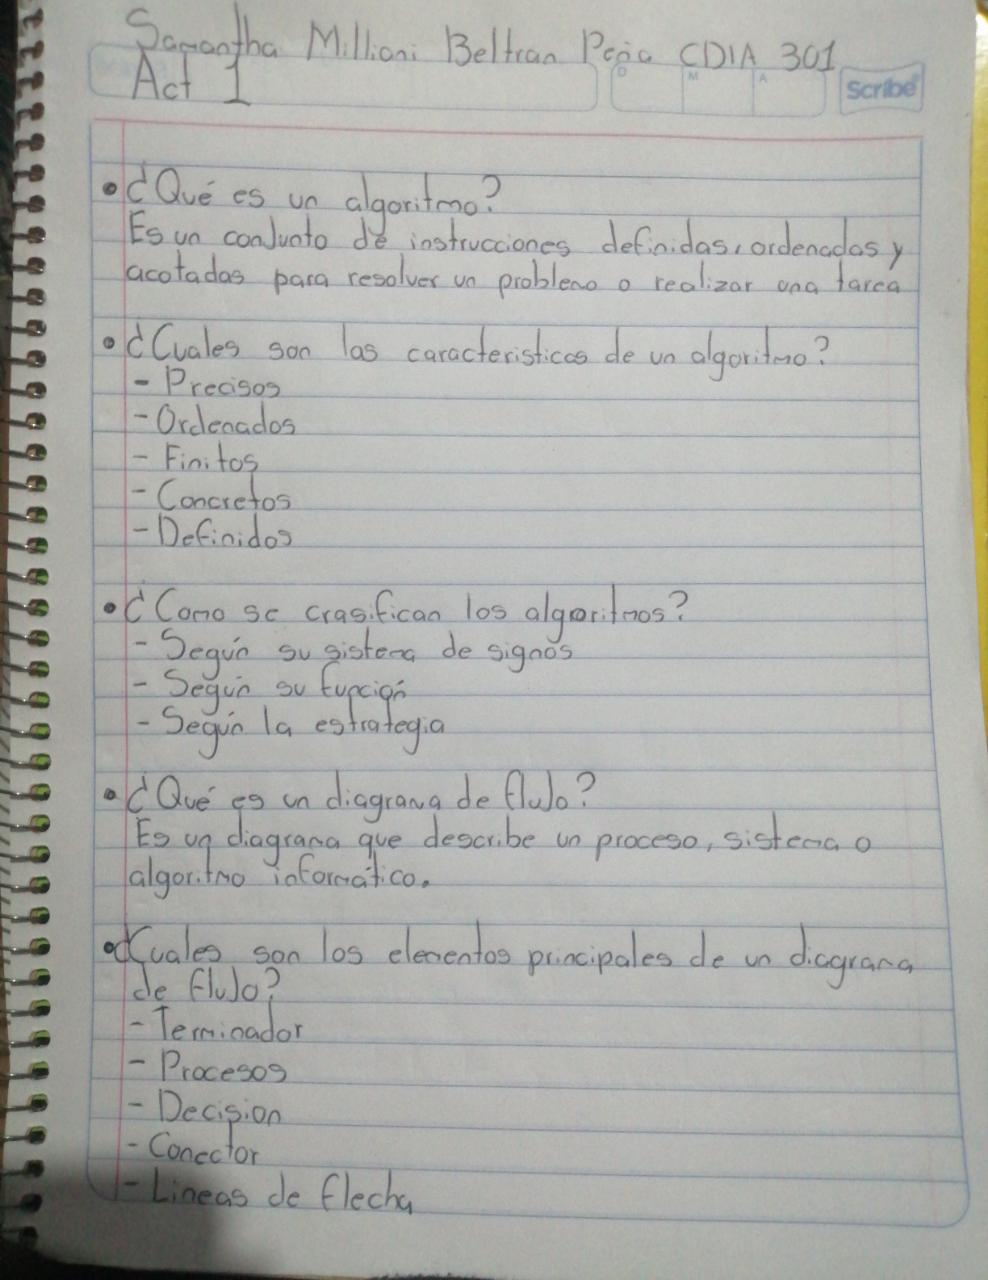 Samantha Millioni Beltran Peña CDIA 301
Act 1
D M A
Scribe
• ¿Qué es un algoritmo?
Es un conjunto de instrucciones definidas, ordenadas y
acotadas para resolver un problema o realizar una tarea
• ¿Cuales son las caracteristicas de un algoritmo?
- Precisos
- Ordenados
- Finitos
- Concretos
- Definidos
• ¿Como se crasifican los algoritmos?
- Según su sistema de signos
- Según su función
- Según la estrategia
• ¿Qué es un diagrama de flujo?
Es un diagrama que describe un proceso, sistema o
algoritmo informático.
• ¿Cuales son los elementos principales de un diagrama
de flujo?
- Terminador
- Procesos
- Decision
- Conector
- Lineas de flecha